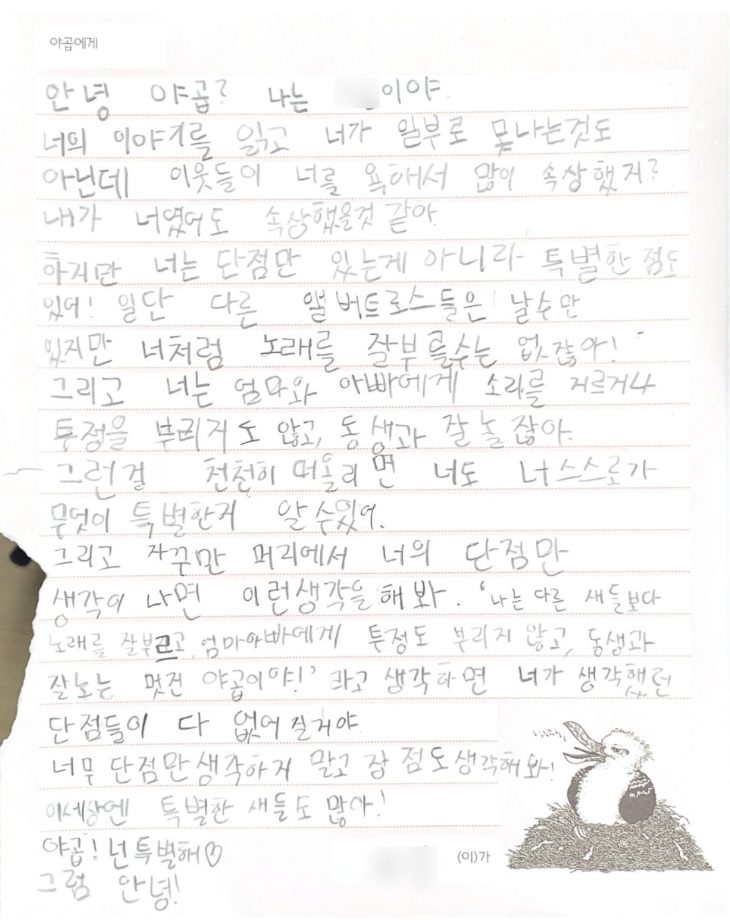 야곱에게
안녕 야곱? 나는 이야.
너의 이야기를 읽고 너가 일부로 못나는것도
아닌데 이웃들이 너를 욕해서 많이 속상했지?
내가 너였어도 속상했을것 같아.
하지만 너는 단점만 있는게 아니라 특별한 점도
있어! 일단 다른 앨버트로스들은 날수만
있지만 너처럼 노래를 잘부를수는 없잖아!
그리고 너는 엄마와 아빠에게 소리를 지르거나
투정을 부리지도 않고, 동생과 잘 놀잖아.
그런걸 천천히 떠올리면 너도 너 스스로가
무엇이 특별한지 알 수있어.
그리고 자꾸만 머리에서 너의 단점만
생각이 나면 이런생각을 해 봐. '나는 다른 새들보다
노래를 잘부르고, 엄마아빠에게 투정도 부리지 않고, 동생과
잘노는 멋진 야곱이야!' 라고 생각하면 너가 생각했던
단점들이 다 없어 질거야.
너무 단점만생각하지 말고 장점도생각해봐!
이세상엔 특별한 새들도 많아!
야곱! 넌특별해♡
(이)가
그럼 안녕!